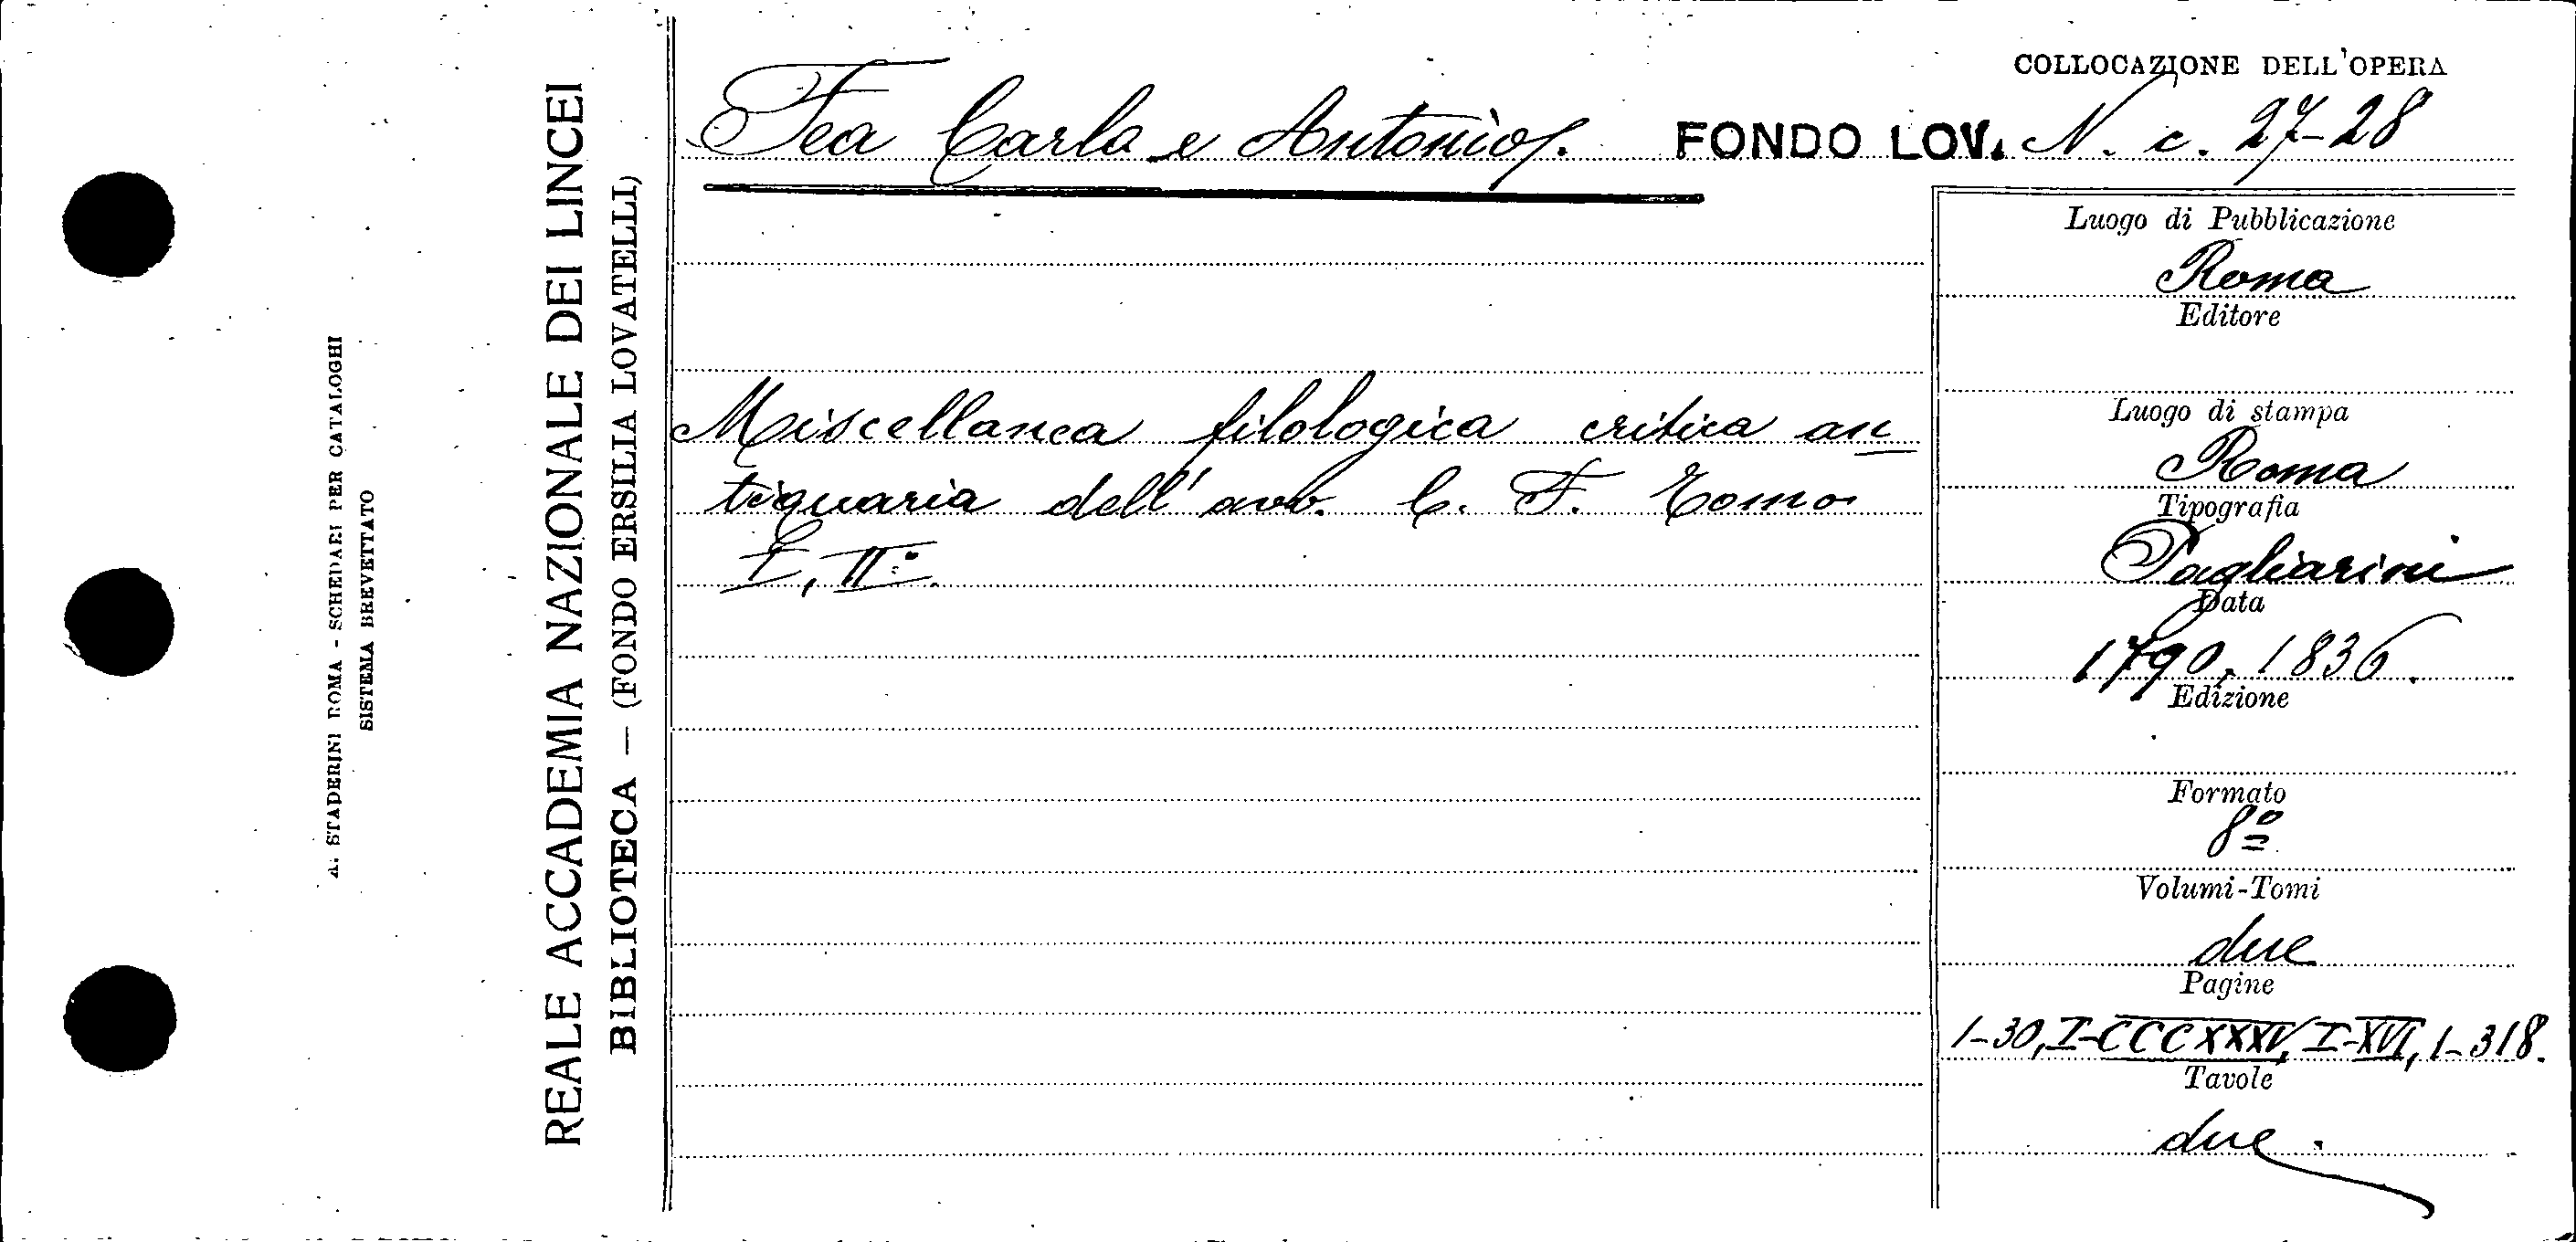 A. STADERINI ROMA - SCHEDARI PER CATALOGHI
SISTEMA BREVETTATO
REALE ACCADEMIA NAZIONALE DEI LINCEI
BIBLIOTECA — (FONDO ERSILIA LOVATELLI)
COLLOCAZIONE DELL'OPERA
Fea Carlo e Antonio. FONDO LOV. N. c. 27-28
Miscellanea filologica critica an
tiquaria dell'avv. C. F. Tomo
I, II°.
Luogo di Pubblicazione
Roma
Editore
Luogo di stampa
Roma
Tipografia
Pagliarini
Data
1790, 1836.
Edizione
Formato
8º
Volumi-Tomi
due
Pagine
1-30, I-CCCXXXV, I-XVI, 1-318.
Tavole
due.